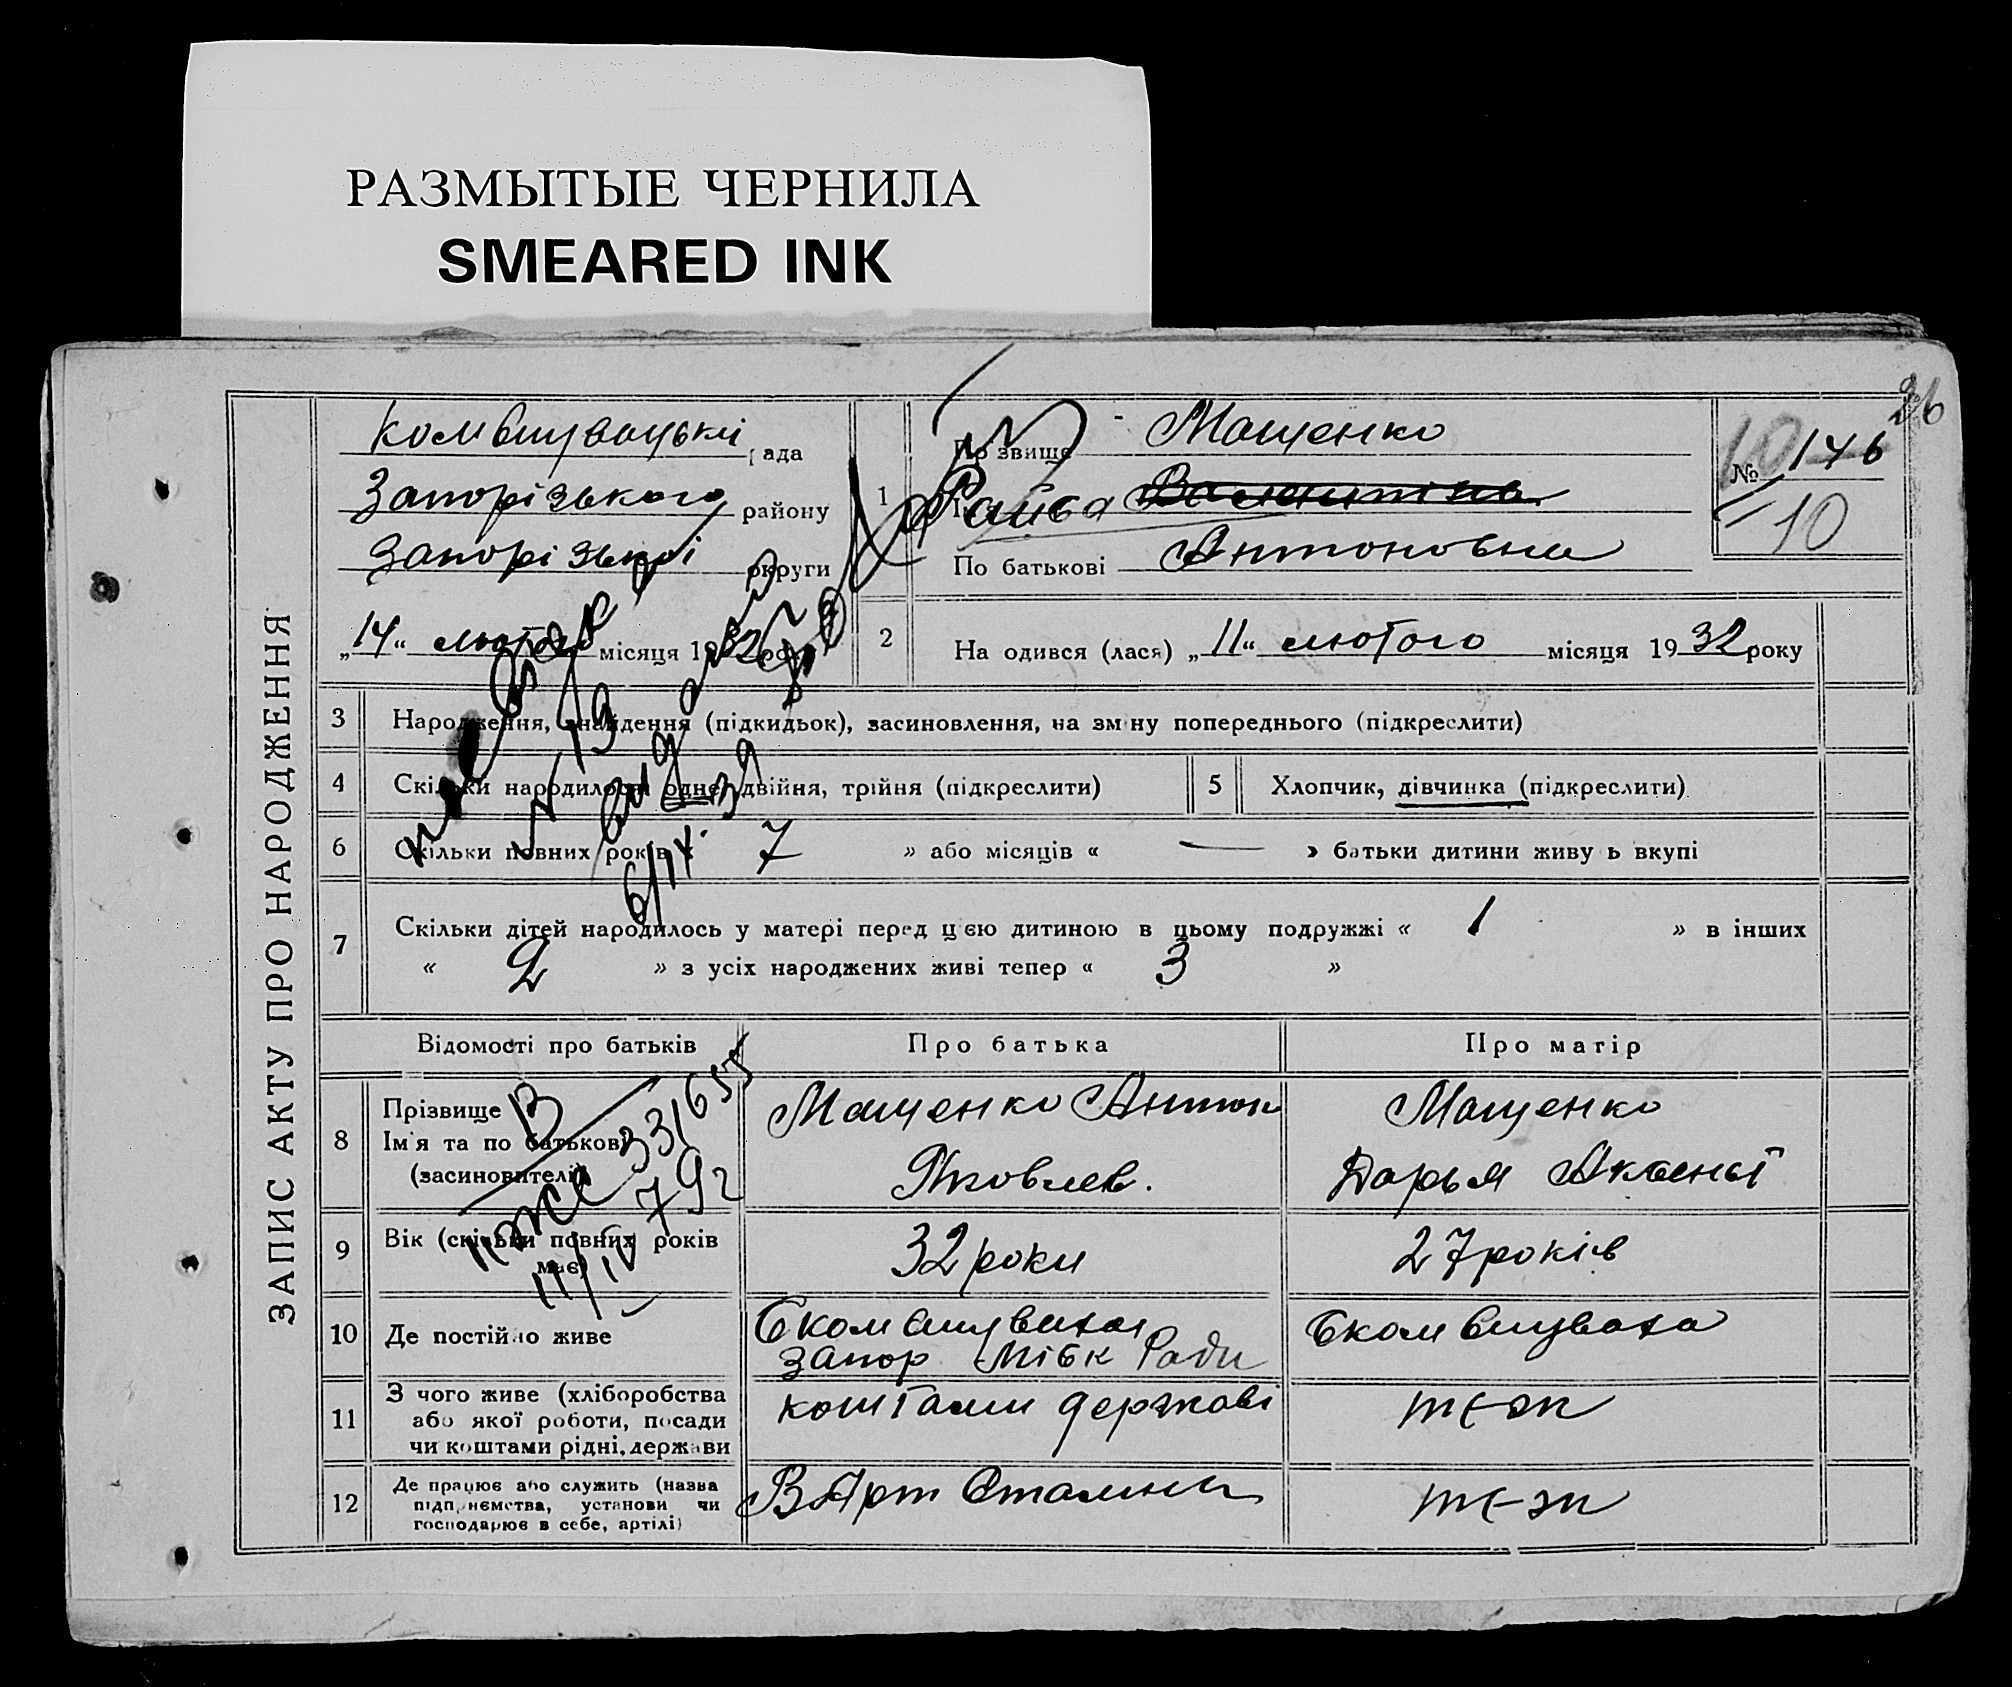 РАЗМЫТЫЕ ЧЕРНИЛА
SMEARED INK
26
ЗАПИС АКТУ ПРО НАРОДЖЕННЯ
Комвишувацькі рада
Запорізького району
Запорізької округи
„14“ лютого місяця 1932 року
1
Прізвище Мащенко
Раиса Валентина
По батькові Антоновна
№ 146
10
10
2 На одився (лася) „11“ лютого місяця 1932 року
3 Народження, знайдення (підкидьок), засиновлення, на зміну попереднього (підкреслити)
4 Скільки народилося одне, двійня, трійня (підкреслити)
5 Хлопчик, дівчинка (підкреслити)
6 Скільки повних років 7 » або місяців « — » батьки дитини живуть вкупі
7 Скільки дітей народилось у матері перед цією дитиною в цьому подружжі « 1 » в інших
« 2 » з усіх народжених живі тепер « 3 »
Відомості про батьків Про батька Про матір
8 Прізвище
Ім'я та по батькові
(засиновителів)
Мащенко Антон
Яковлев.
Мащенко
Дарья
9 Вік (скільки повних років
має)
32 роки
27 років
10 Де постійно живе
Комвишуваха
запор Міськ Ради
Комвишуваха
11 З чого живе (хліборобства
або якої роботи, посади
чи коштами рідні, держави
коштами державі
теж
12 Де працює або служить (назва
підприємства, установи чи
господарює в себе, артілі)
В Арт Сталина
теж
№ 19
видано
6/IX. 39
331655
11/IV 792